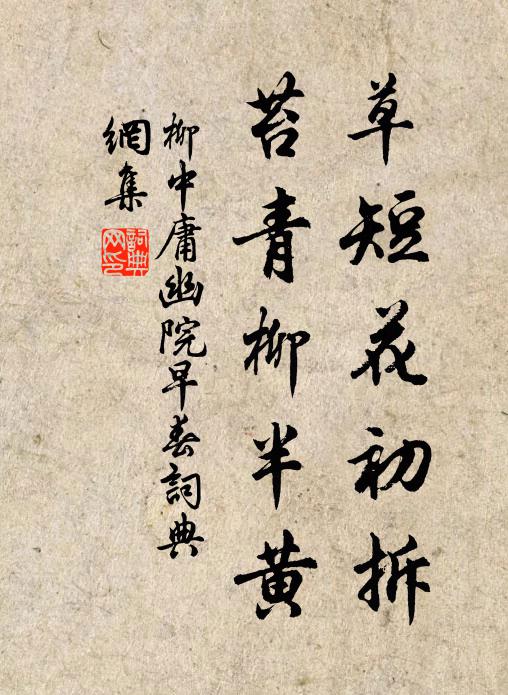 草短花初拆
苔青柳半黄
柳中庸幽院早春詞典
網集
詞典
网印